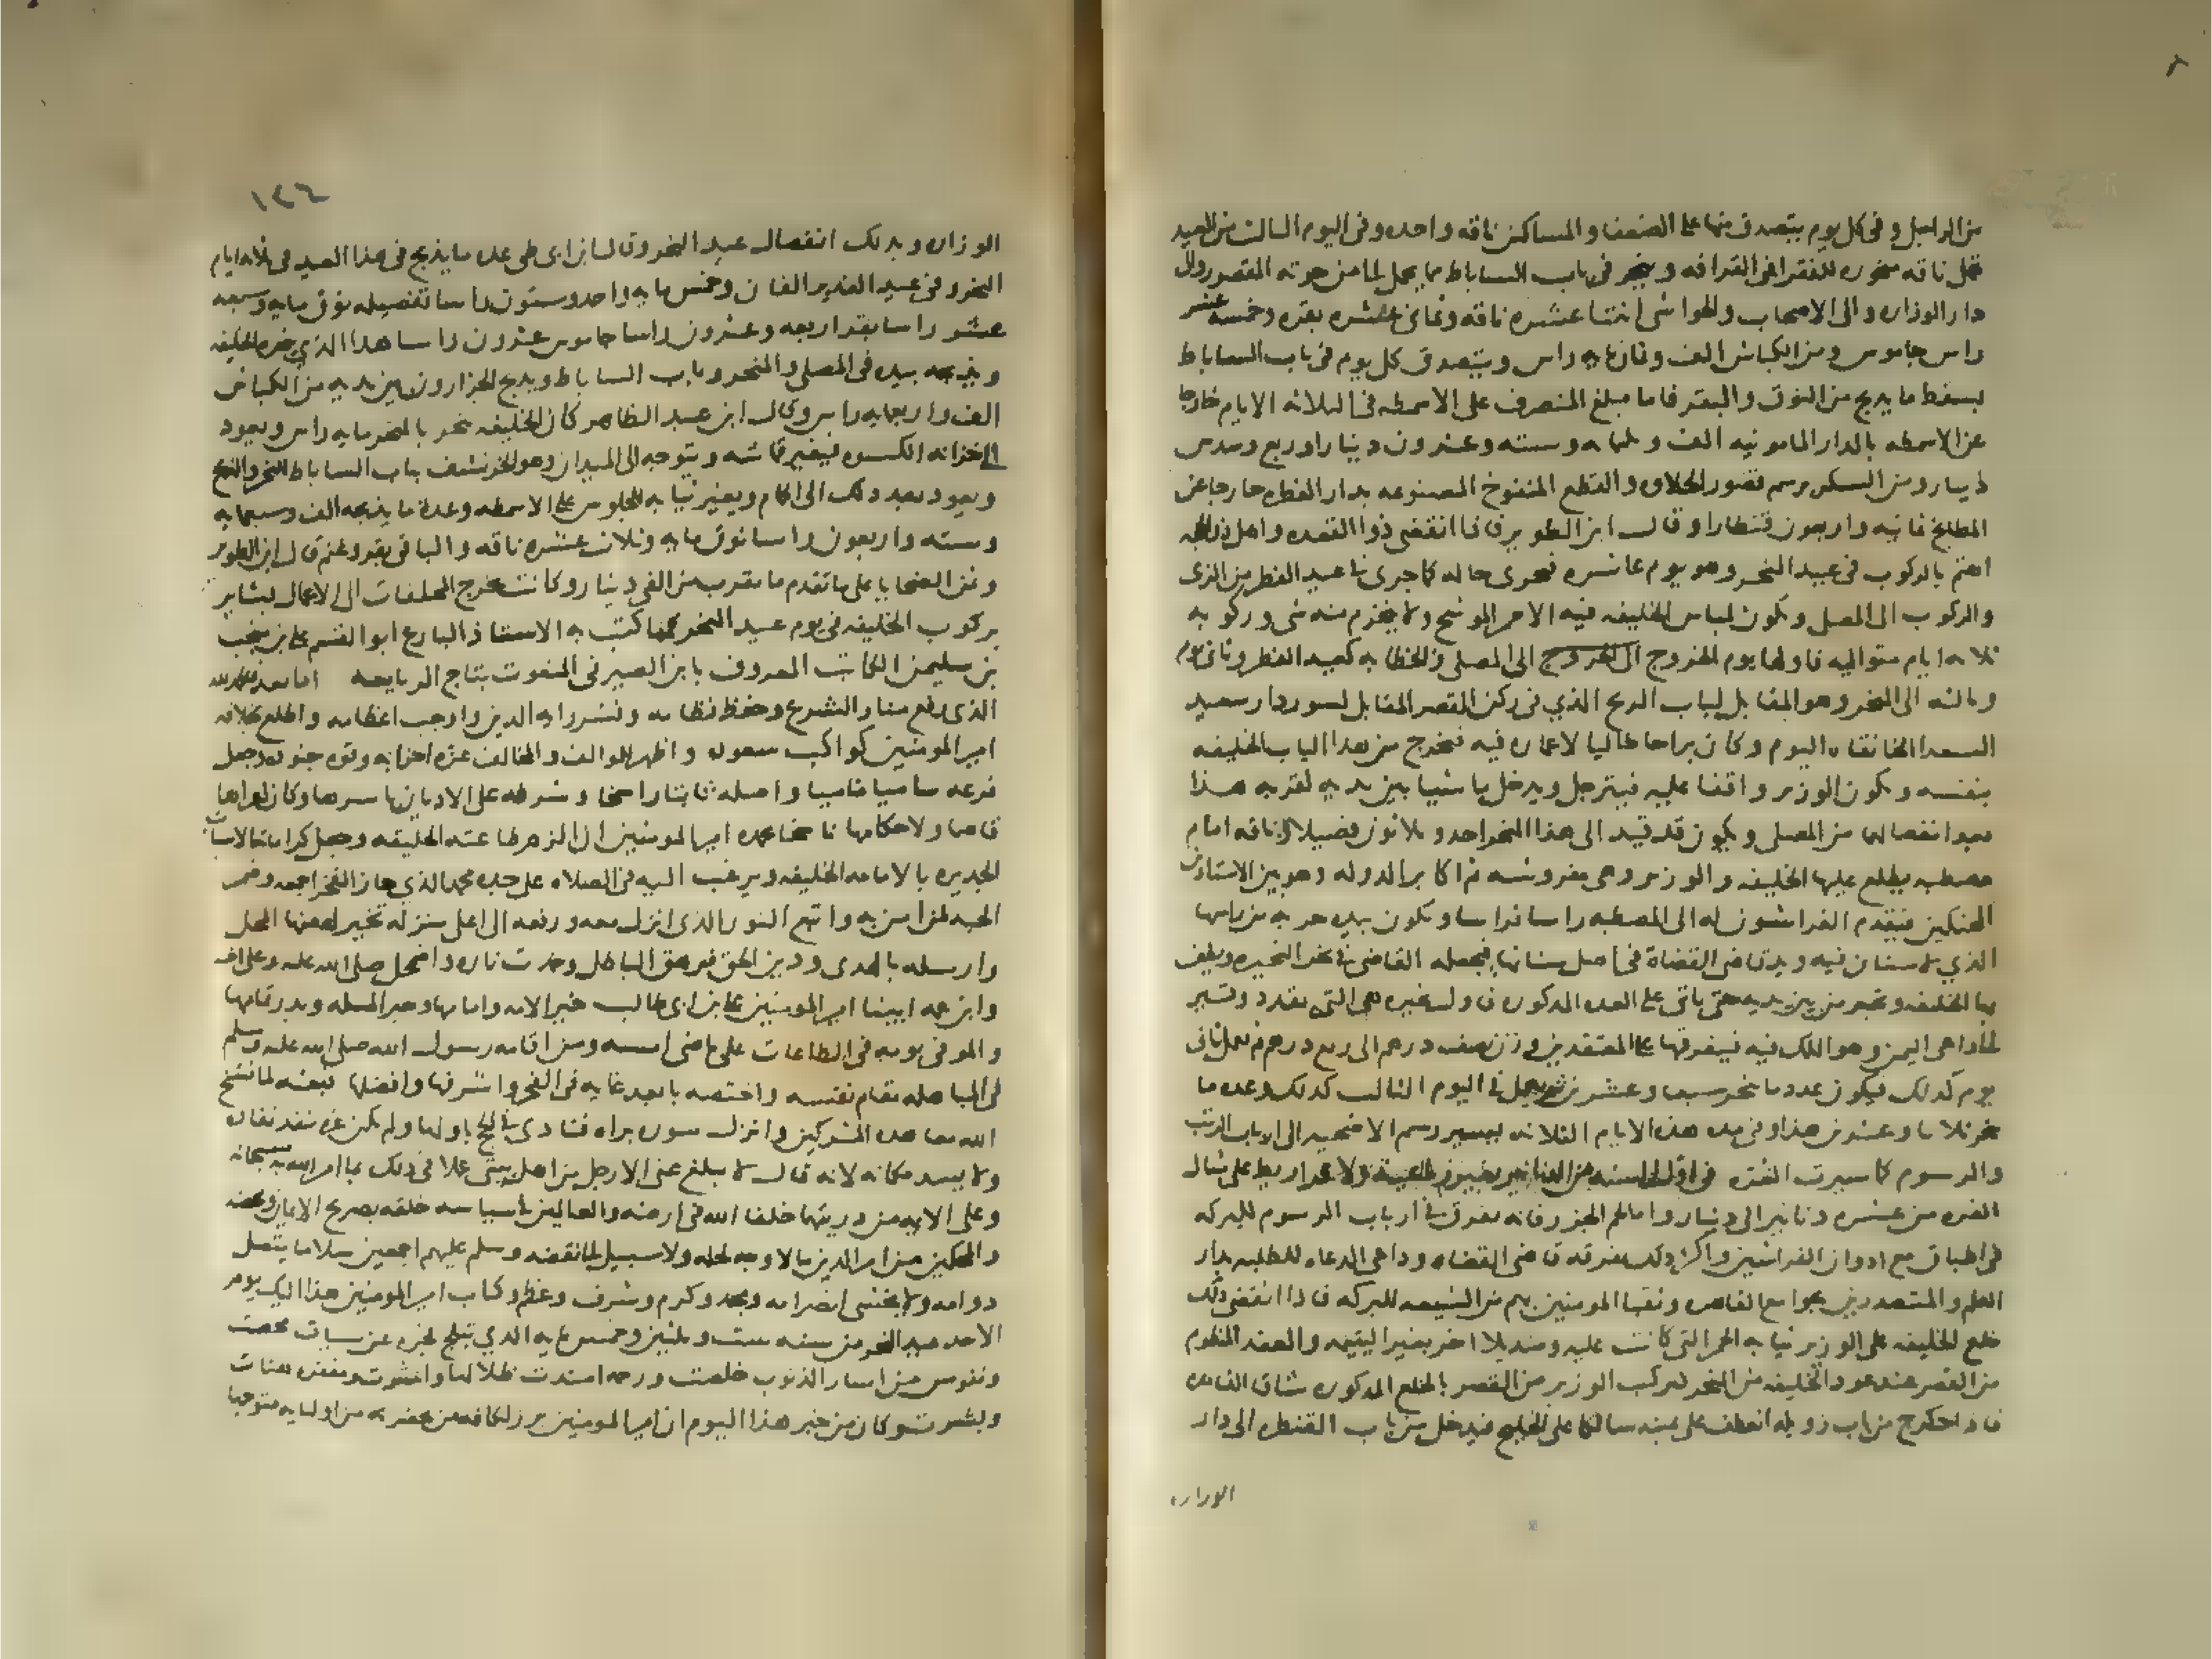 من الراحل وفى كل يوم يتصدق منها على الضعفا والمساكين ناقه واحده وفى اليوم الثالث من العيد
تحمل ناقه منحوره للفقرا فى القرافه وينحر فى باب الساباط مما يحمل لمن حوته القصور والى
دار الوزاره والى الاصحاب والحواشى اثنتا عشره ناقه وثمانى عشره بقره وخمسه عشر
راس جاموس ومن الكباش الف وثمان مايه راس ويتصدق كل يوم فى باب الساباط
بسقط ما يذبح من النوق والبقر فاما مبلغ المنصرف على الاسمطه فى الثلاثه الايام خارجا
عن الاسمطه بالدار المامونيه الف وثلثمايه وسته وعشرون دينارا وربع وسدس
دينار ومن السكر برسم قصور الحلاوه والقطع المنفوخ المصنوعه بدار الفطره خارجا عن
المطابخ ثمانيه واربعون قنطارا وقال ابن الطوير فاذا انقضى ذوا القعده واهل ذو الحجه
اهتم بالركوب فى عيد النحر وهو يوم عاشره فيجرى حاله كما جرى فى عيد الفطر من الزى
والركوب الى المصلى ويكون لباس الخليفه فيه الاحمر الموشح ولا ينخرم منه شى وركوبه
ثلاثه ايام متواليه فاولها يوم الخروج الى المصلى والخطابه كعيد الفطر وثانى يوم
وثالثه الى المنحر وهو المقابل لباب الريح الذي فى ركن القصر المقابل لسور دار سعيد
السعدا الخانقاه اليوم وكان براحا خاليا لا عماره فيه فيخرج من هذا الباب الخليفه
بنفسه ويكون الوزير واقفا عليه فيترجل ويدخل ماشيا بين يديه لقربه هذا
بعد انفصالهما من المصلى ويكون قد قيد الى هذا المنحر احد وثلاثون فصيلا وناقه امام
مصطبه يطلع عليها الخليفه والوزير وهى مفروشه ثم اكابر الدوله وهو بين الاستاذين
المحنكين فيقدم الفراشون له الى المصطبه راسا فراسا ويكون بيده حربه من راسها
الذي لا سنان فيه ويد قاضى القضاة فى اصل سنانها فيجعله القاضى فى نحر النحيره ويطعن
بها الخليفه وتجر من بين يديه حتى ياتى على العده المذكوره فاول نحيره هى التى تقدد وتسير
الى داعى اليمن وهو الملك فيه فيفرقها على المعتقدين وزن نصف درهم الى ربع درهم ثم يعمل ثانى
يوم كذلك فيكون عدد ما ينحر سبعا وعشرين ثم يعمل فى اليوم الثالث كذلك وعده ما
ينحر ثلاثا وعشرين هذا وفى مده هذه الايام الثلاثه يسير رسم الاضحيه الى ارباب الرتب
والرسوم كما سيرت الغره فى اول السنه من الدنانير بغير رباعيه ولا قراريط على مثال
الغره من عشره دنانير الى دينار واما لحم الجزور فانه يفرق فى ارباب الرسوم للبركه
فى اطباق مع ادوان الفراشين واكثر ذلك يفرقه قاضى القضاه وداعى الدعاه للطلبه بدار
العلم والمتصدرين بجوامع القاهره ونقبا المومنين بهم من الشيعه للبركه فاذا انقضى ذلك
خلع الخليفه على الوزير ثيابه الحمر التى كانت عليه ومنديلا اخر بغير اليتيمه والعقد المنظوم
من القصر عند عود الخليفه من المنحر فيركب الوزير من القصر بالخلع المذكوره شاق القاهره
فاذا خرج من باب زويله انعطف على يمينه سالكا على الخليج فيدخل من باب القنطره الى دار
الوزاره
١٢٤
الوزاره وبذلك انفصال عيد النحر وقال ابن ابى طى عده ما يذبح فى هذا العيد فى ثلاثه ايام
النحر وفى عيد الغدير الفان وخمس مايه واحد وستون راسا تفصيله نوق مايه وسبعه
عشر راسا بقر اربعه وعشرون راسا جاموس عشرون راسا هذا الذي ينحره الخليفه
ويذبحه بيده فى المصلى والمنحر وباب الساباط ويذبح الجزارون بين يديه من الكباش
الف واربعمايه راس وقال ابن عبد الظاهر كان الخليفه ينحر بالمنحر مايه راس ويعود
الى خزانه الكسوه فيغير قماشه ويتوجه الى الميدان وهو الخرنشف بباب الساباط للنحر والذبح
ويعود بعد ذلك الى الحمام ويغير ثيابه للجلوس على الاسمطه وعدة ما يذبحه الف وسبعمايه
وسته واربعون راسا نوق مايه وثلاث عشره ناقه والباقى بقر وغنم قال ابن الطوير
وثمن الضحايا على ما تقدم ما يقرب من الفى دينار وكانت تخرج المخلقات الى الاعمال بشاير
بركوب الخليفه فى يوم عيد النحر فمما كتب به الاستاذ البارع ابو القسم على بن منجب
بن سليمن الكاتب المعروف بابن الصيرفى المنعوت بتاج الرياسه اما بعد فالحمد لله
الذى رفع منار الشرع وحفظ نظامه ونشر راية الدين واوجب اعظامه واطلع بخلافه
امير المومنين كواكب سعوده واظهر للموالف والمخالف عزه احزابه وقوه جنوده وجعل
فرعه ساميا ناميا واصله ثابتا راسخا وشرفه على الاديان باسرها وكان لعراها
فاصما ولاحكامها ناسخا يحمده امير المومنين ان الزم طاعته الخليقه وجعل كراماته الاسباب
الجديره بالامامه الخليقه ويرغب اليه فى الصلاه على جده محمد الذي حاز الفخر اجمعه وضمن
الجنه لمن امن به واتبع النور الذى انزل معه ورفعه الى اعلى منزله تخير له منها المحل
وارسله بالهدى ودين الحق فزهق الباطل وخمدت ناره واضمحل صلى الله عليه وعلى اخيه
وابن عمه ابينا امير المومنين على بن ابى طالب خير الامه وامامها وحبر المله وبدر تمامها
والموفى يومه فى الطاعات على ماضى امسه ومن اقامه رسول الله صلى الله عليه وسلم
فى المباهله مقام نفسه واختصه بابعد غايه فى الفخر واشرفها وافضلها فبعثه لما نسخ
الله معاهده المشركين وانزل سوره براه فنادى فى الحج باولها ولم يكن غيره ينفذ نفاذه
ولا يسد مكانه لانه قال لا يبلغ عنى الا رجل من اهل بيتى عملا فى ذلك بما امر الله به سبحانه
وعلى الايمه من ذريتهما خلفا الله فى ارضه والعاملين فى سياسه خلقه بصريح الايمان ومحضه
والمحكمين من امر الدين ما لا وجه لحله ولا سبيل لنقضه وسلم عليهم اجمعين سلاما يتصل
دوامه ولا يخشى انصرامه ومجد وكرم وشرف وعظم وكتاب امير المومنين هذا اليك يوم
الاحد عيد النحر من سنه ست وثلثين وخمس مايه الذي تبلج فجره عن سيات محصت
ونفوس من اسار الذنوب خلصت ورحمه امتدت ظلالها وانتشرت ومغفره هنات
وبشرت وكان من خبر هذا اليوم ان امير المومنين برز لكافه من بحضرته من اوليايه متوجها